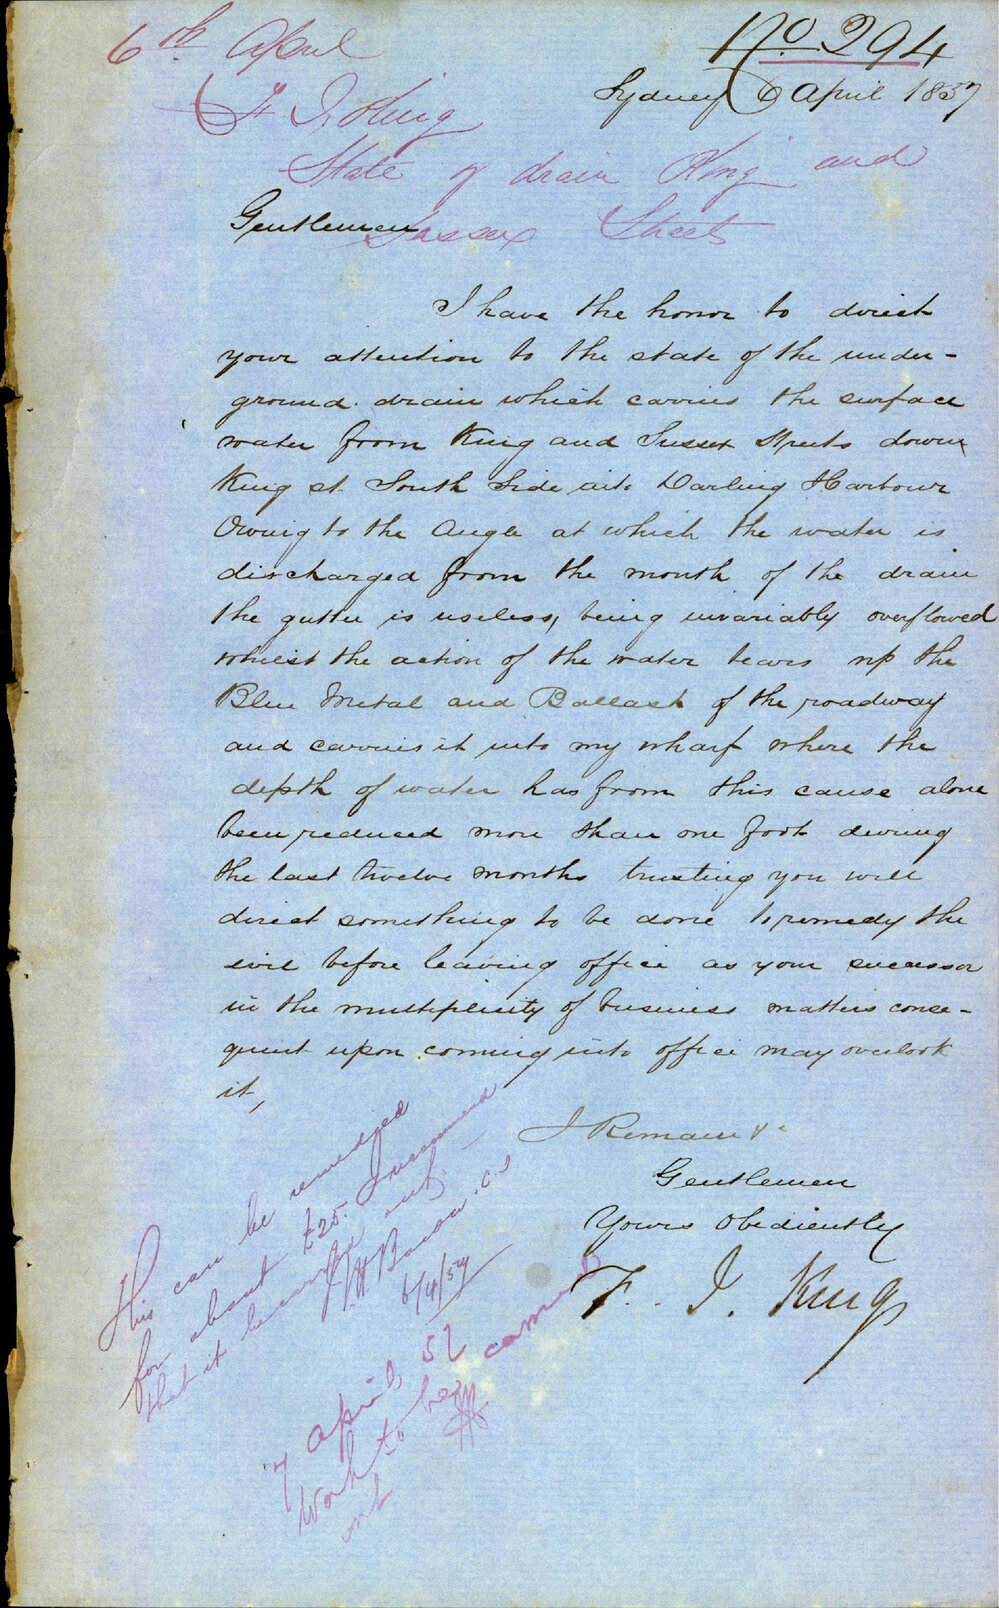 6th April
No 294
Sydney 6 April 1857
F. J. King
State of drain King and
Sussex Street
Gentlemen
I have the honor to direct
your attention to the state of the under-
ground drain which carries the surface
water from King and Sussex Streets down
King st South Side into Darling Harbour
Owing to the Angle at which the water is
discharged from the mouth of the drain
the gutter is useless, being invariably overflowed
whilst the action of the water tears up the
Blue Metal and Ballast of the roadway
and carries it into my wharf where the
depth of water has from this cause alone
been reduced more than one foot during
the last twelve months trusting you will
direct something to be done to remedy the
evil before leaving office as your successor
in the multiplicity of business matters conse-
quent upon coming into office may overlook
it,
I Remain &c
Gentlemen
Yours Obediently
F. J. King
This can be remedied
for about £25. I recommend
that it be carried out. –
6/4/57
7 April 57
Work to be carried
out